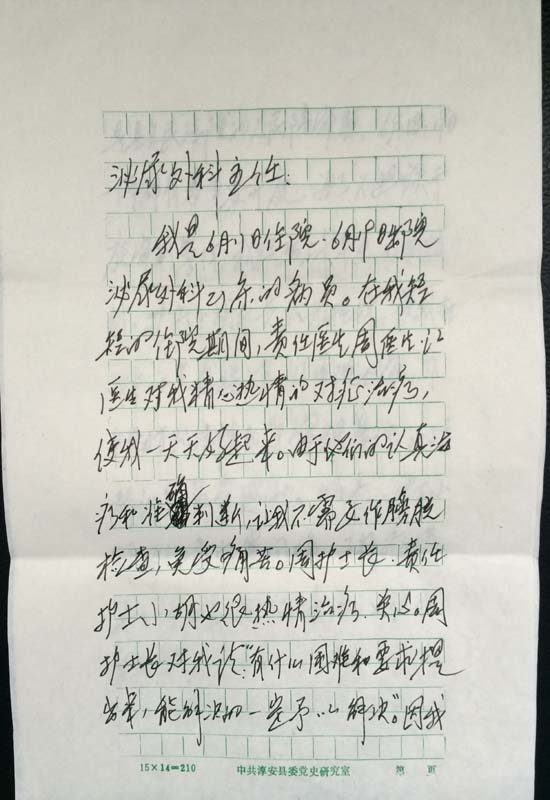 泌尿外科主任:
我是6月11日住院、6月19日出院
泌尿外科21床的病员。在我短
短的住院期间,责任医生周医生、江
医生对我精心热情的对症治疗,
使我一天天好起来。由于他们的认真治
疗和准确判断,让我不需要作膀胱
检查,免受痛苦。周护士长、责任
护士小胡也很热情治疗、关心。周
护士长对我说:"有什么困难和要求提
出来,能解决的一定予以解决"。因我
15×14=210 中共淳安县委党史研究室 第 页